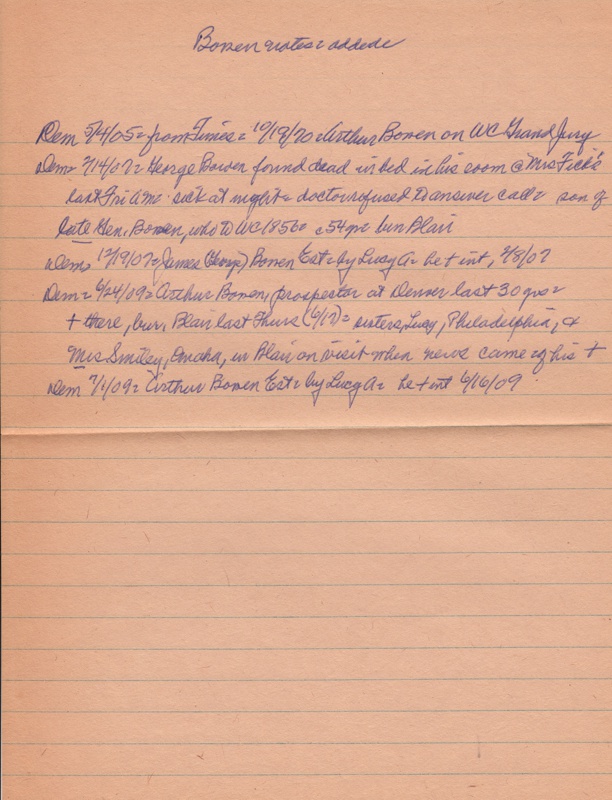 Bowen notes = addede
Dem 5/4/05 = from Times = 10/19/70 = Arthur Bowen on WC Grand Jury
Dem = 2/14/07 = George Bowen found dead in bed in his room @ Mrs Fick's
last Fri AM = sick at night = doctor refused to answer call = son of
late Gen. Bowen, who to WC 1856 = c54 yr = bur Blair
Dem, 12/19/07 = James (George) Bowen Est = by Lucy A = he + int, 2/8/07
Dem = 6/24/09 = Arthur Bowen, prospector at Denver last 30 yrs =
+ there, bur, Blair last Thurs (6/17) = sisters, Lucy, Philadelphia, &
Mrs Smiley, Omaha, in Blair on visit when news came of his +
Dem 7/1/09 = Arthur Bowen Est = by Lucy A = he + int 6/16/09